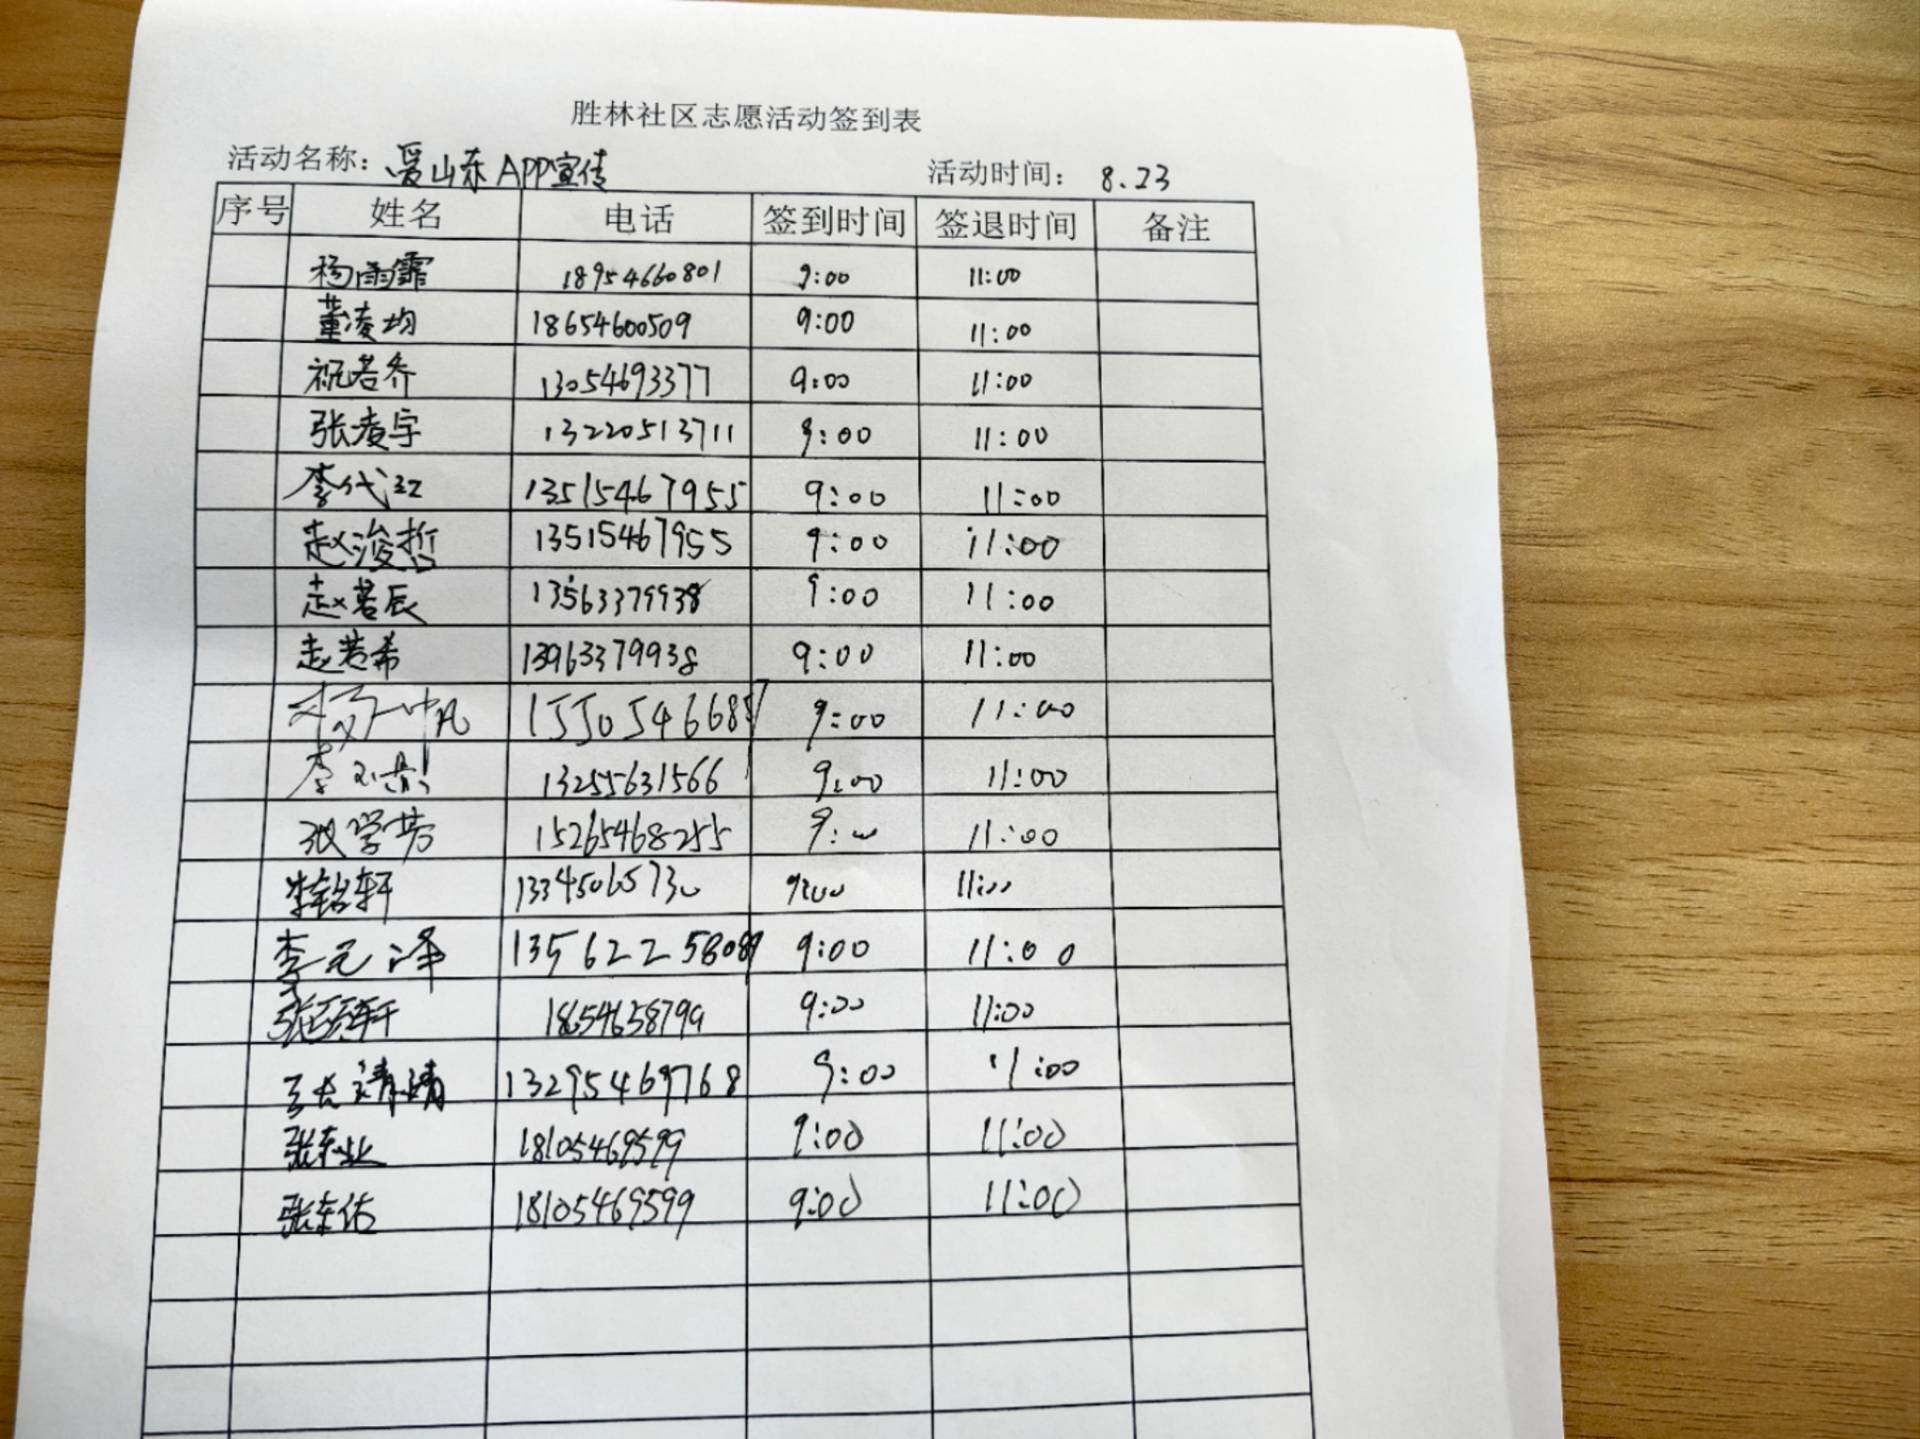 胜林社区志愿活动签到表
活动名称：爱山东APP宣传 活动时间： 8.23
序号 姓名 电话 签到时间 签退时间 备注
杨雨霏 18954660801 9:00 11:00
董凌均 18654600509 9:00 11:00
祝若乔 13054693377 9:00 11:00
张凌宇 13220513711 9:00 11:00
李代红 13515467955 9:00 11:00
赵浚哲 13515467955 9:00 11:00
赵若辰 13563379938 9:00 11:00
赵若希 13963379938 9:00 11:00
杨一帆 9:00 11:00
李 13255631566 9:00 11:00
张学芳 15265468255 9:00 11:00
轩 13345065730 9:00 11:00
李元泽 9:00 11:00
张 轩 18654658799 9:00 11:00
王大靖靖 13295469768 9:00 11:00
张东业 18105469599 9:00 11:00
张东佑 18105469599 9:00 11:00